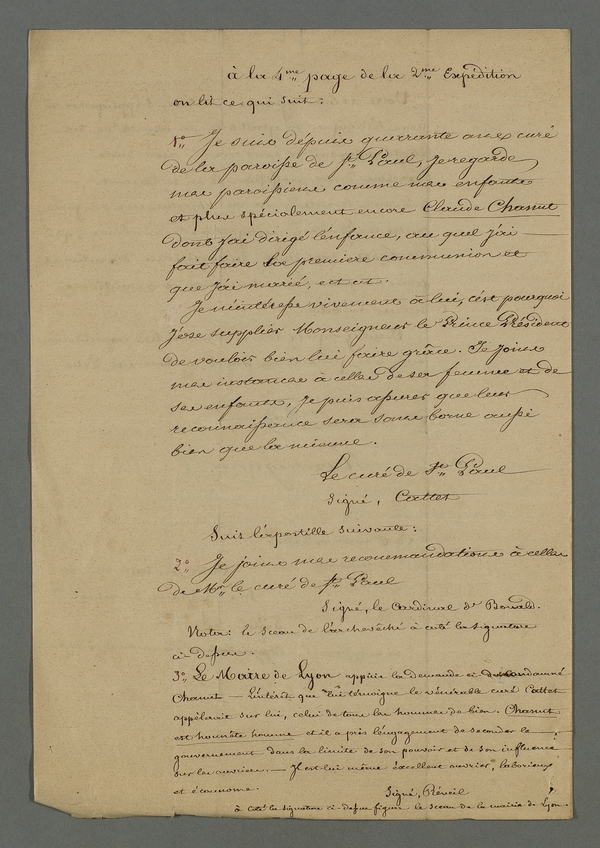 à la 4.me page de la 2.me Expédition
on lit ce qui suit :
1.o Je suis dépuis quarante ans curé
de la paroisse de St. Paul, je regarde
mes paroissiens comme mes enfants
et plus spécialement encore Claude Chanut
dont j'ai dirigé l'enfance, au quel j'ai
fait faire sa premiere communion et
que j'ai marié, ect ect.
Je m'intéresse vivement à lui, c'est pourquoi
J'ose supplier Monseigneur le Prince Président
de vouloir bien lui faire grâce. Je joins
mes instances à celles de sa femme et de
ses enfants, je puis assurer que leur
reconnaissance sera sans borne aussi
bien que la mienne.
Le curé de St. Paul
Signé, Cattet
Suit l'apostille suivante :
2.o Je joins mes recommandations à celles
de Mr. le curé de St. Paul
Signé, le Cardinal de Bonald.
Nota : le Sceau de l'archevêché à coté la signature
ci-dessus.
3.o Le Maire de Lyon appuie la demande condamné
Chanut — L'intérêt que lui témoigne le vénérable curé Cattet
appèlerait sur lui, celui de tous les hommes de bien. Chanut
est honnête homme et il a pris l'engagement de seconder le
gouvernement dans la limite de son pouvoir et de son influence
sur les ouvriers. — Il est lui même éxcellent ouvrier, laborieux
et économe.
Signé, Réveil
à coté la signature ci-dessus figure le sceau de la mairie de Lyon.